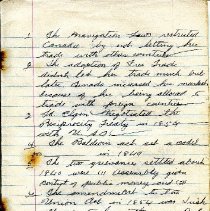 1 The Navigation Laws restricted
Canada by not letting her
trade with other countries
2 The adoption of Free Trade
her trade much but
later Canada increased her markets
because of the being allowed to
trade with foreign countries
3 Ld Elgin negotiated the
Reciprocity Treaty in 1854
with U.S.A.
4 The Baldwin act
in 1840
5 The two grievances settled about
1840 were (1) Assembly given
control of public money and (2)
6 The amendment to the
Union Act in 1854 was